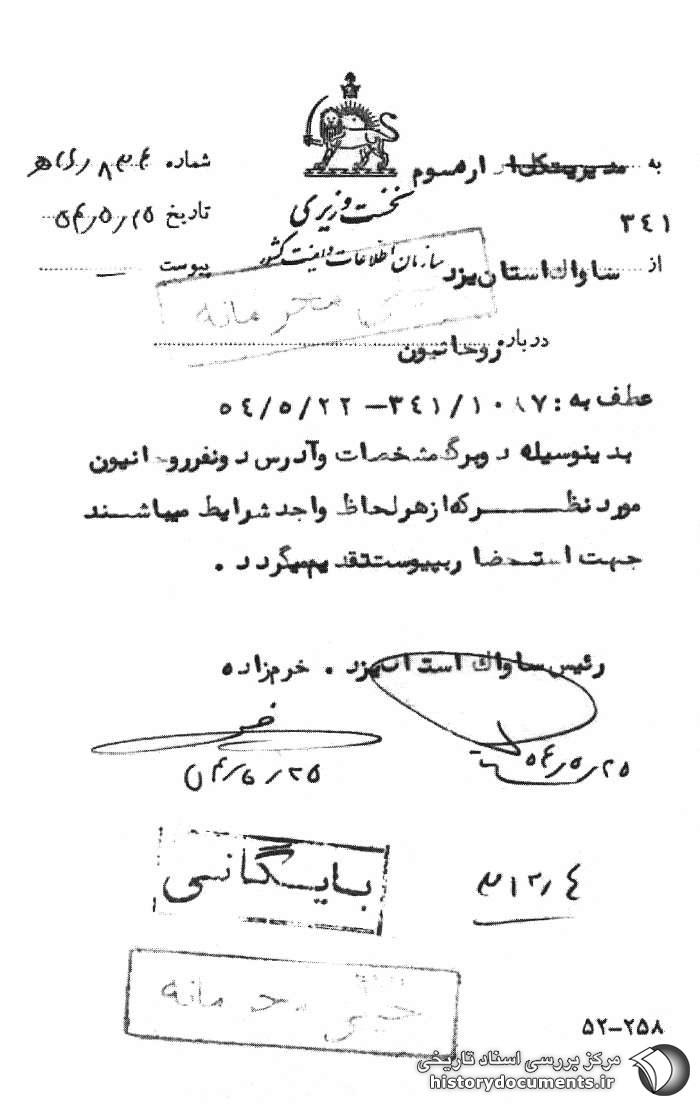 به مدیریت کل اداره سوم
۳۴۱
از ساواک استان یزد
درباره روحانیون
نخست وزیری
سازمان اطلاعات و امنیت کشور
شماره
تاریخ ۵۴/۵/۲۵
پیوست
خیلی محرمانه
عطف به : ۳۴۱/۱۰۸۷ – ۵۴/۵/۲۲
بدینوسیله دوبرگ مشخصات وآدرس دونفرروحانیون
مورد نظر که از هر لحاظ واجد شرایط میباشند
جهت استحضار بپیوست تقدیم میگردد .
رئیس ساواک استان یزد . خرم زاده
۵۴/۵/۲۵
۵۴/۵/۲۵
بایگانی
خیلی محرمانه
۵۲-۲۵۸
مرکز بررسی اسناد تاریخی
historydocuments.ir